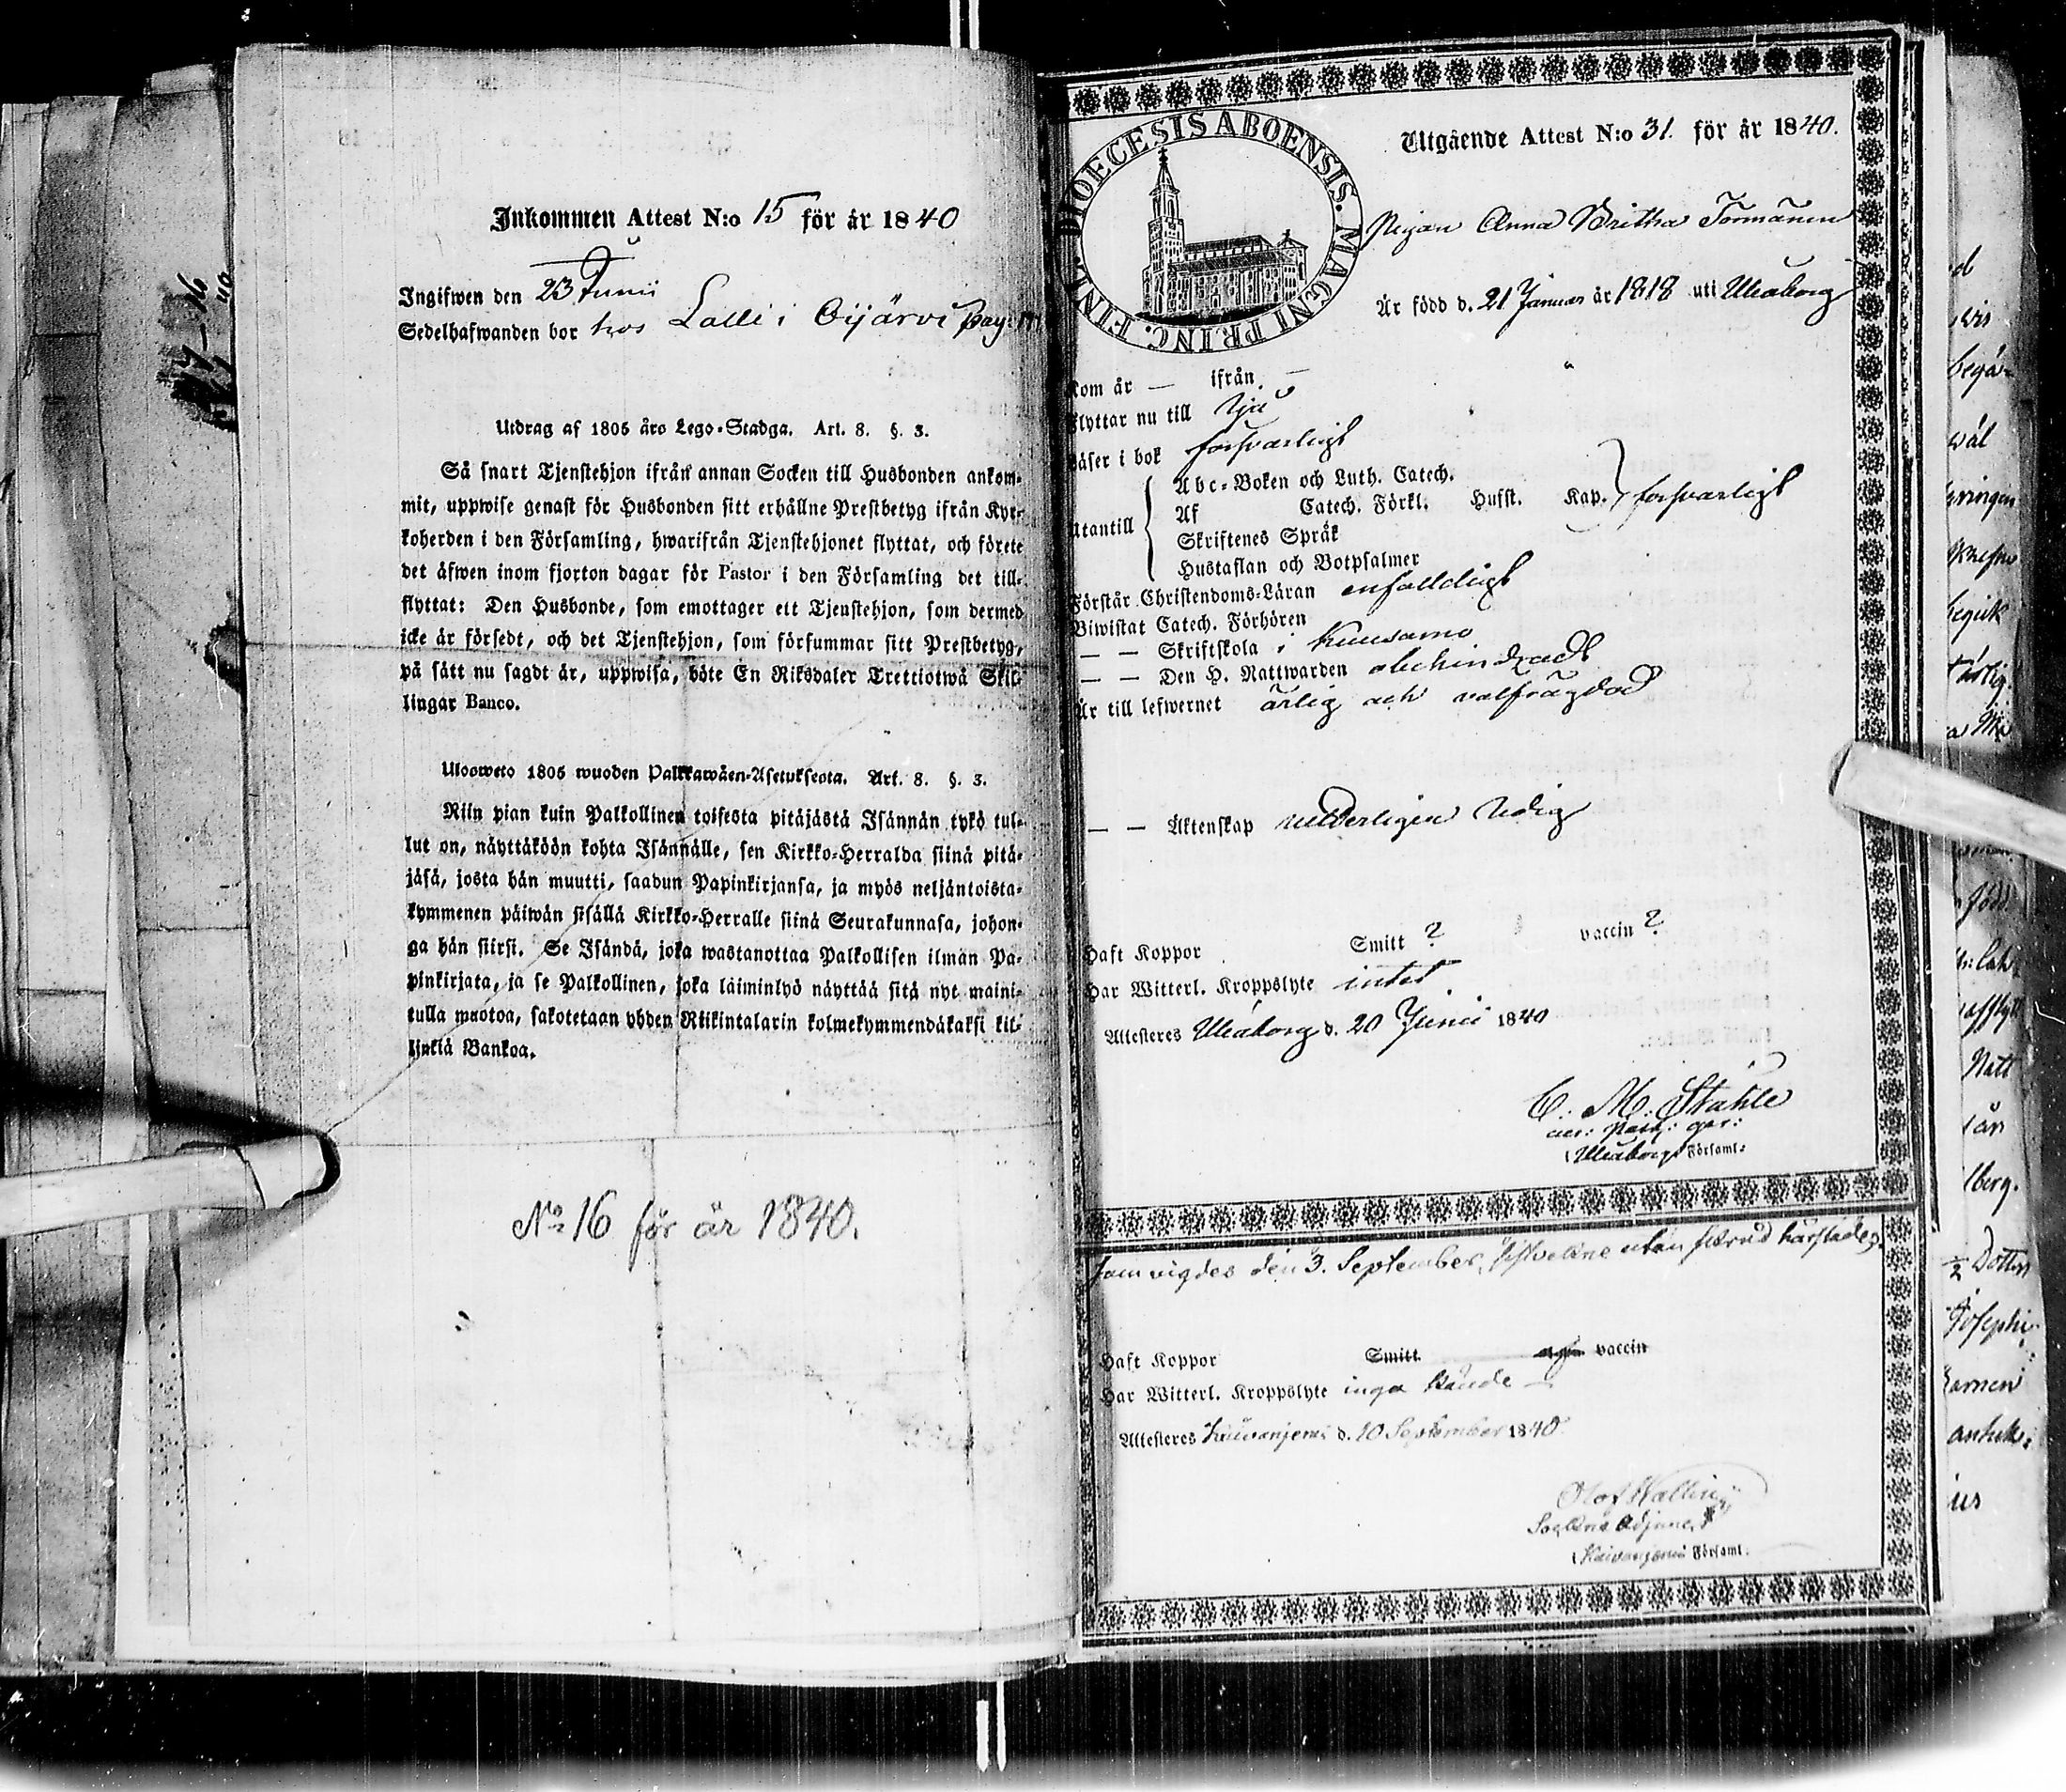 Inkommen Attest N:o 15 för år 1840
Ingifwen den 23 Junii
Sedelhafwanden bor hos Lalli i Oijärvi
Utdrag af 1805 års Lego-Stadga. Art. 8. §. 3.
Så snart Tjenstehjon ifrån annan Socken till Husbonden ankom-
mit, uppwise genast för Husbonden sitt erhållne Prestbetyg ifrån Kyr-
koherden i den Församling, hwarifrån Tjenstehjonet flyttat, och förete
det äfwen inom fjorton dagar för Pastor i den Församling det till-
flyttat: Den Husbonde, som emottager ett Tjenstehjon, som dermed
icke är försedt, och det Tjenstehjon, som försummar sitt Prestbetyg,
på sätt nu sagdt är, uppwisa, böte En Riksdaler Trettiotwå Skil-
lingar Banco.
Ulosweto 1805 wuoden Palkkawäen-Asetuksesta. Art. 8. §. 3.
Niin pian kuin Palkollinen toisesta pitäjästä Isännän tykö tul-
lut on, näyttäköön kohta Isännälle, sen Kirkko-Herralda siinä pitä-
jäsä, josta hän muutti, saadun Papinkirjansa, ja myös neljäntoista-
kymmenen päiwän sisällä Kirkko-Herralle siinä Seurakunnasa, johon-
ga hän siirsi. Se Isändä, joka wastanottaa Palkollisen ilman Pa-
pinkirjata, ja se Palkollinen, joka laiminlyö näyttää sitä nyt maini-
tulla muotoa, sakotetaan yhden Riikintalarin kolmekymmendäkaksi kil-
linkiä Bankoa.
No 16 för år 1840.
DIOECESIS ABOENSIS. MAGNI PRINC. FINL.
Utgående Attest N:o 31. för år 1840.
Pigan Anna Britha Törmänen
Är född d. 21 Januar år 1818 uti Uleåborg
Kom år — ifrån —
Flyttar nu till Ijo
Läser i bok försvarligt
Utantill
Abc-Boken och Luth. Catech.
Af Catech. Förkl. Hufst. Kap. försvarligt
Skriftenes Språk
Hustaflan och Botpsalmer
Förstår Christendoms-Läran enfalldigt
Biwistat Catech. Förhören
— — Skriftskola i Kuusamo
— — Den H. Nattwarden obehindradt
Är till lefwernet ärlig och välfrägdad
— — Äktenskap ledig
Haft Koppor Smitt ? vaccin ?
Har Witterl. Kroppslyte intet
Attesteres Uleåborg d. 20 Junii 1840
C. M. Ståhle
Uleåborgs Församl:
som vigdes den 3. September,
Haft Koppor Smitt vaccin
Har Witterl. Kroppslyte inga kände —
Attesteres d. 10 September 1840
Olof
Församl.